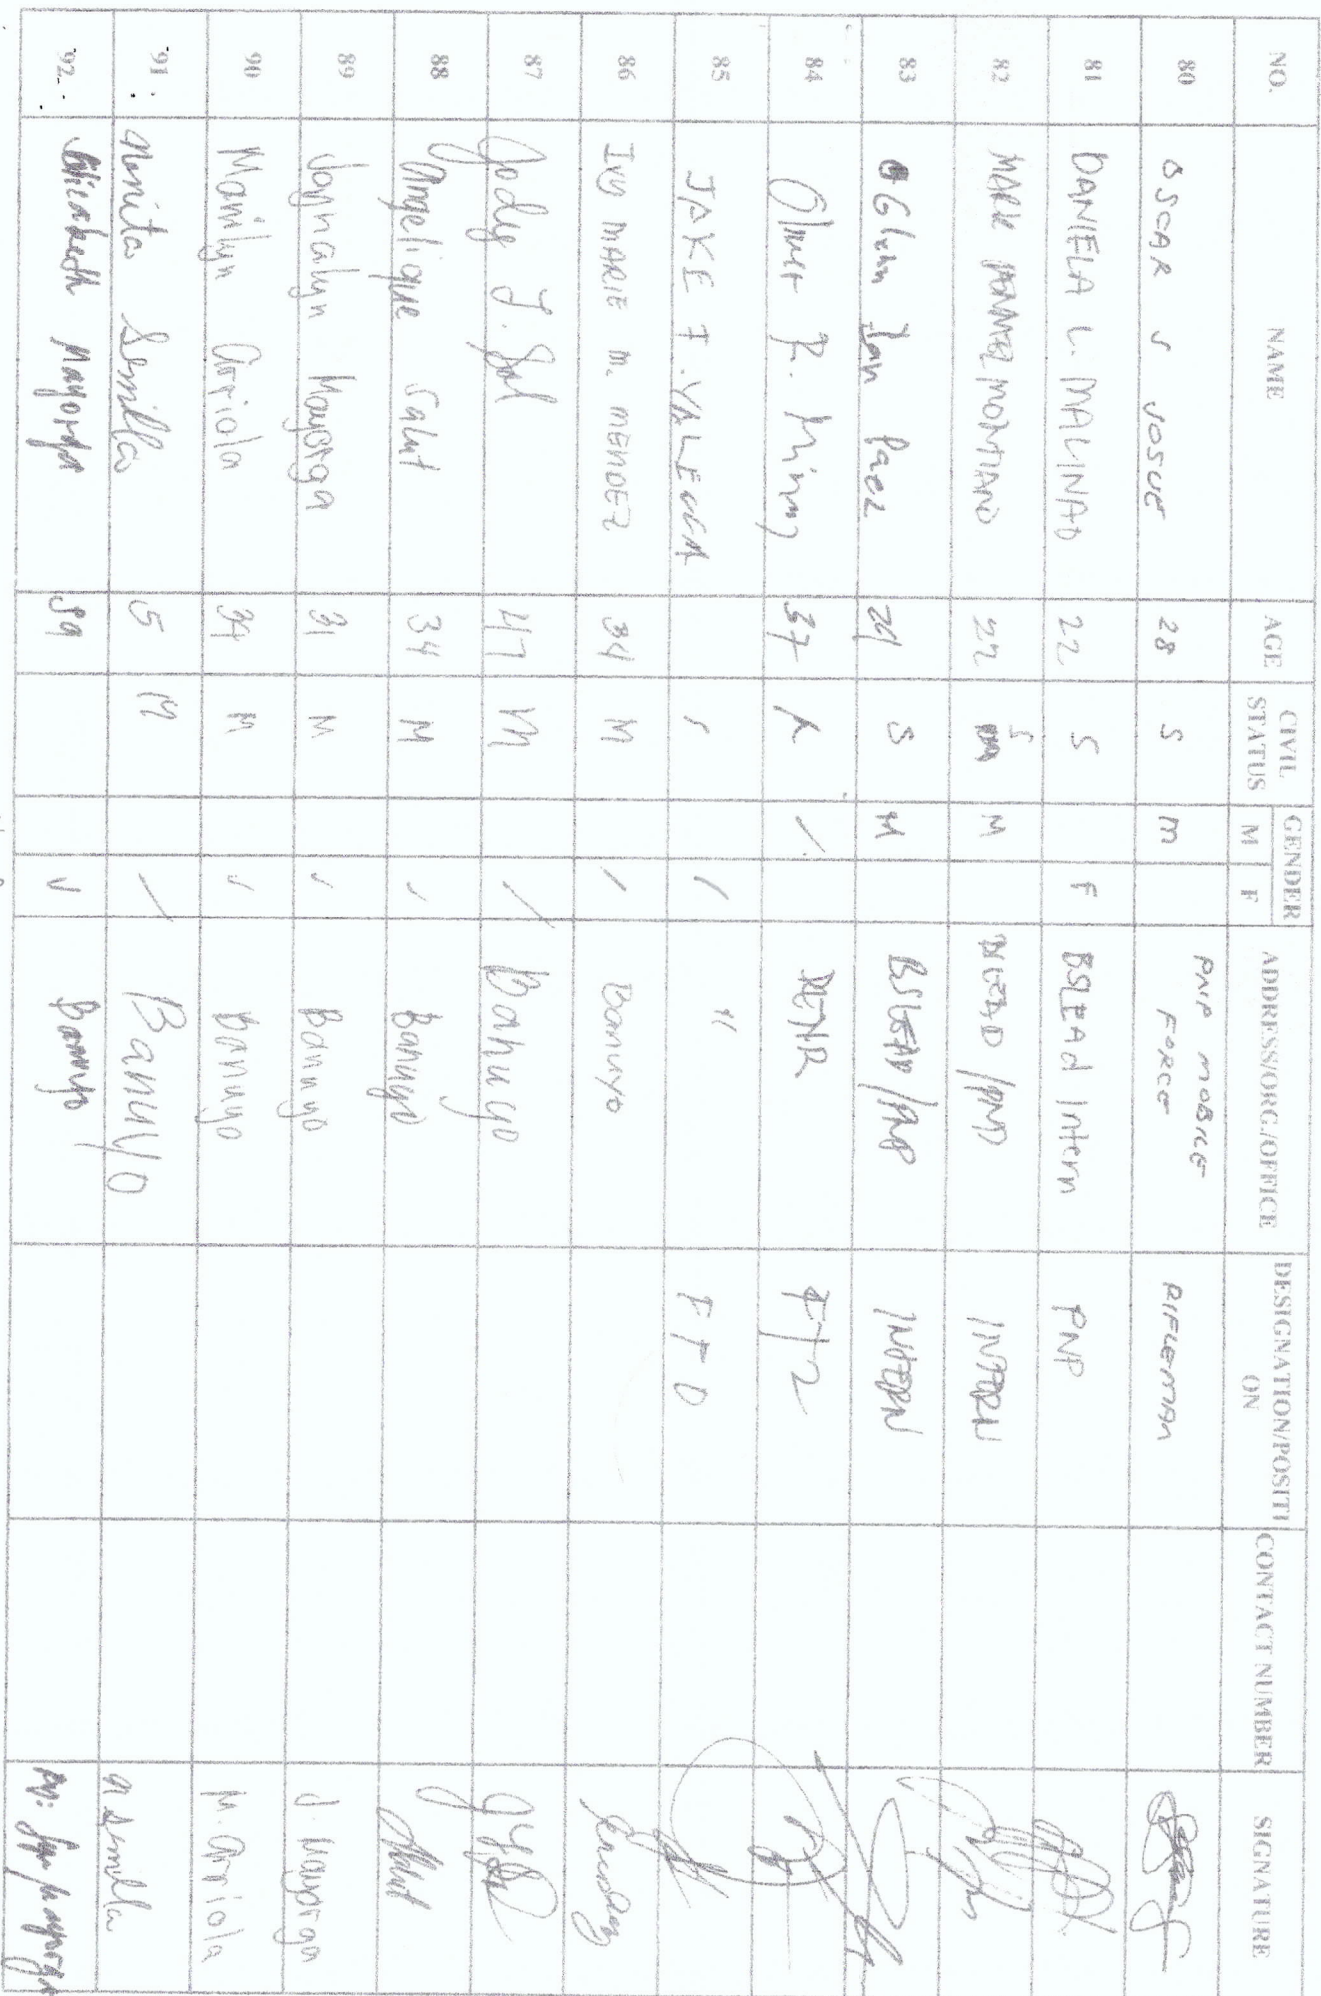 NO. NAME AGE CIVIL STATUS GENDER M F ADDRESS/ORG./OFFICE DESIGNATION/POSITI ON CONTACT NUMBER SIGNATURE
80 OSCAR S JOSUE 28 S M PNP MOBILE FORCE RIFLEMAN
81 DANIELA L. MALINAO 22 S F BSLEAd Intern PNP
82 MARK MONTIANO 22 S M /PNP INTERN
83 Glenn Ian Paez 29 S M BSLEAD/PNP INTERN
84 R. 37 / DENR FT2
85 JAKE F. / / " FTD
86 IVY MARIE M. MENDEZ 34 M / Banuyo
87 Jody J. Sol 47 M / Banuyo
88 Angelique Salut 34 M ✓ Banuyo
89 Joyncalyn Mayorga 31 M ✓ Banuyo J. Mayorga
90 Marilyn Arriola 39 M ✓ Banuyo M. Arriola
91 Anita Semilla 5 M / Banuyo A Semilla
92 Mayorga 59 ✓ Banuyo